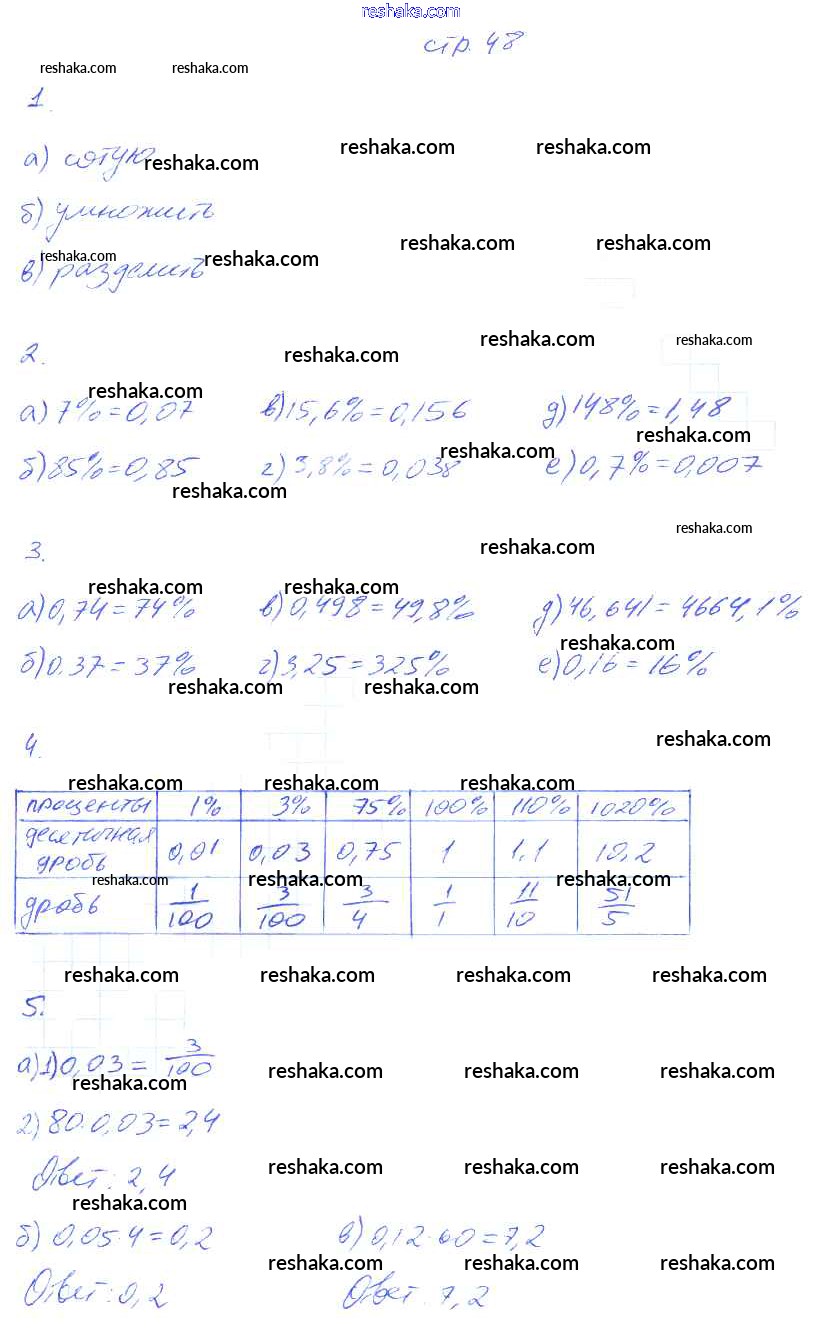 reshaka.com
стр. 48
reshaka.com reshaka.com
1.
а) сотую reshaka.com reshaka.com reshaka.com
б) умножить
reshaka.com reshaka.com
в) разделить reshaka.com reshaka.com
2. reshaka.com reshaka.com reshaka.com
reshaka.com
а) 7% = 0,07 в) 15,6% = 0,156 д) 148% = 1,48
reshaka.com reshaka.com
б) 85% = 0,85 г) 3,8% = 0,038 е) 0,7% = 0,007
reshaka.com
reshaka.com
3. reshaka.com
reshaka.com reshaka.com
а) 0,74 = 74% в) 0,498 = 49,8% д) 46,641 = 4664,1%
reshaka.com
б) 0.37 = 37% г) 3,25 = 325% е) 0,16 = 16%
reshaka.com reshaka.com
4. reshaka.com
reshaka.com reshaka.com reshaka.com
проценты 1% 3% 75% 100% 110% 1020%
десятичная
дробь 0,01 0,03 0,75 1 1,1 10,2
reshaka.com reshaka.com reshaka.com
дробь 1/100 3/100 3/4 1/1 11/10 51/5
reshaka.com reshaka.com reshaka.com reshaka.com
5.
а) 1) 0,03 = 3/100
reshaka.com reshaka.com reshaka.com
reshaka.com
2) 80·0,03 = 2,4
Ответ: 2,4 reshaka.com reshaka.com reshaka.com
reshaka.com
б) 0,05·4 = 0,2 в) 0,12·60 = 7,2
reshaka.com reshaka.com reshaka.com
Ответ: 0,2 Ответ: 7,2